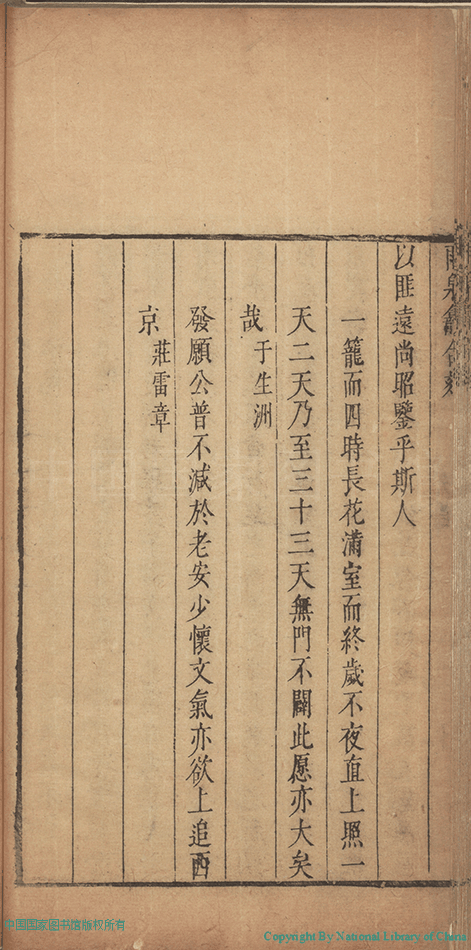 以匪遠尚昭鑒乎斯人
一籠而四時長花滿室而終歲不夜直上照一
天二天乃至三十三天無門不闢此愿亦大矣
哉于生洲
發願公普不減於老安少懷文氣亦欲上追西
京莊雷章
中国国家图书馆版权所有
Copyright By National Library of China